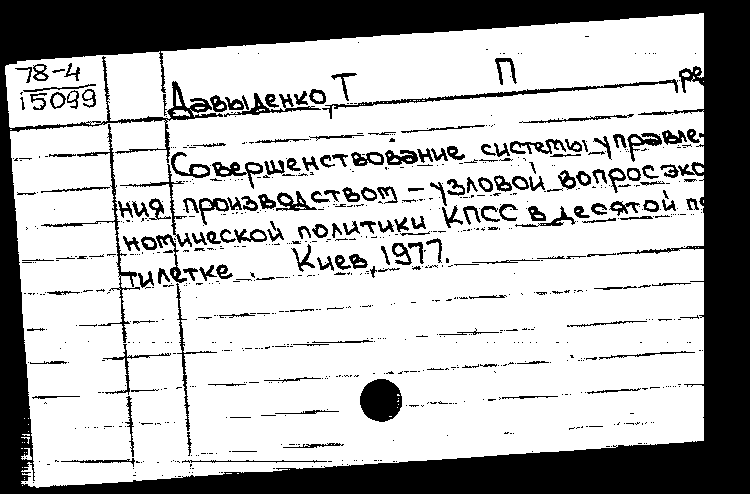 78-4
15099
Давыденко, Т П , ре
Совершенствование системы управле-
ния производством – узловой вопрос эко
номической политики КПСС в десятой пя
тилетке. Киев, 1977.